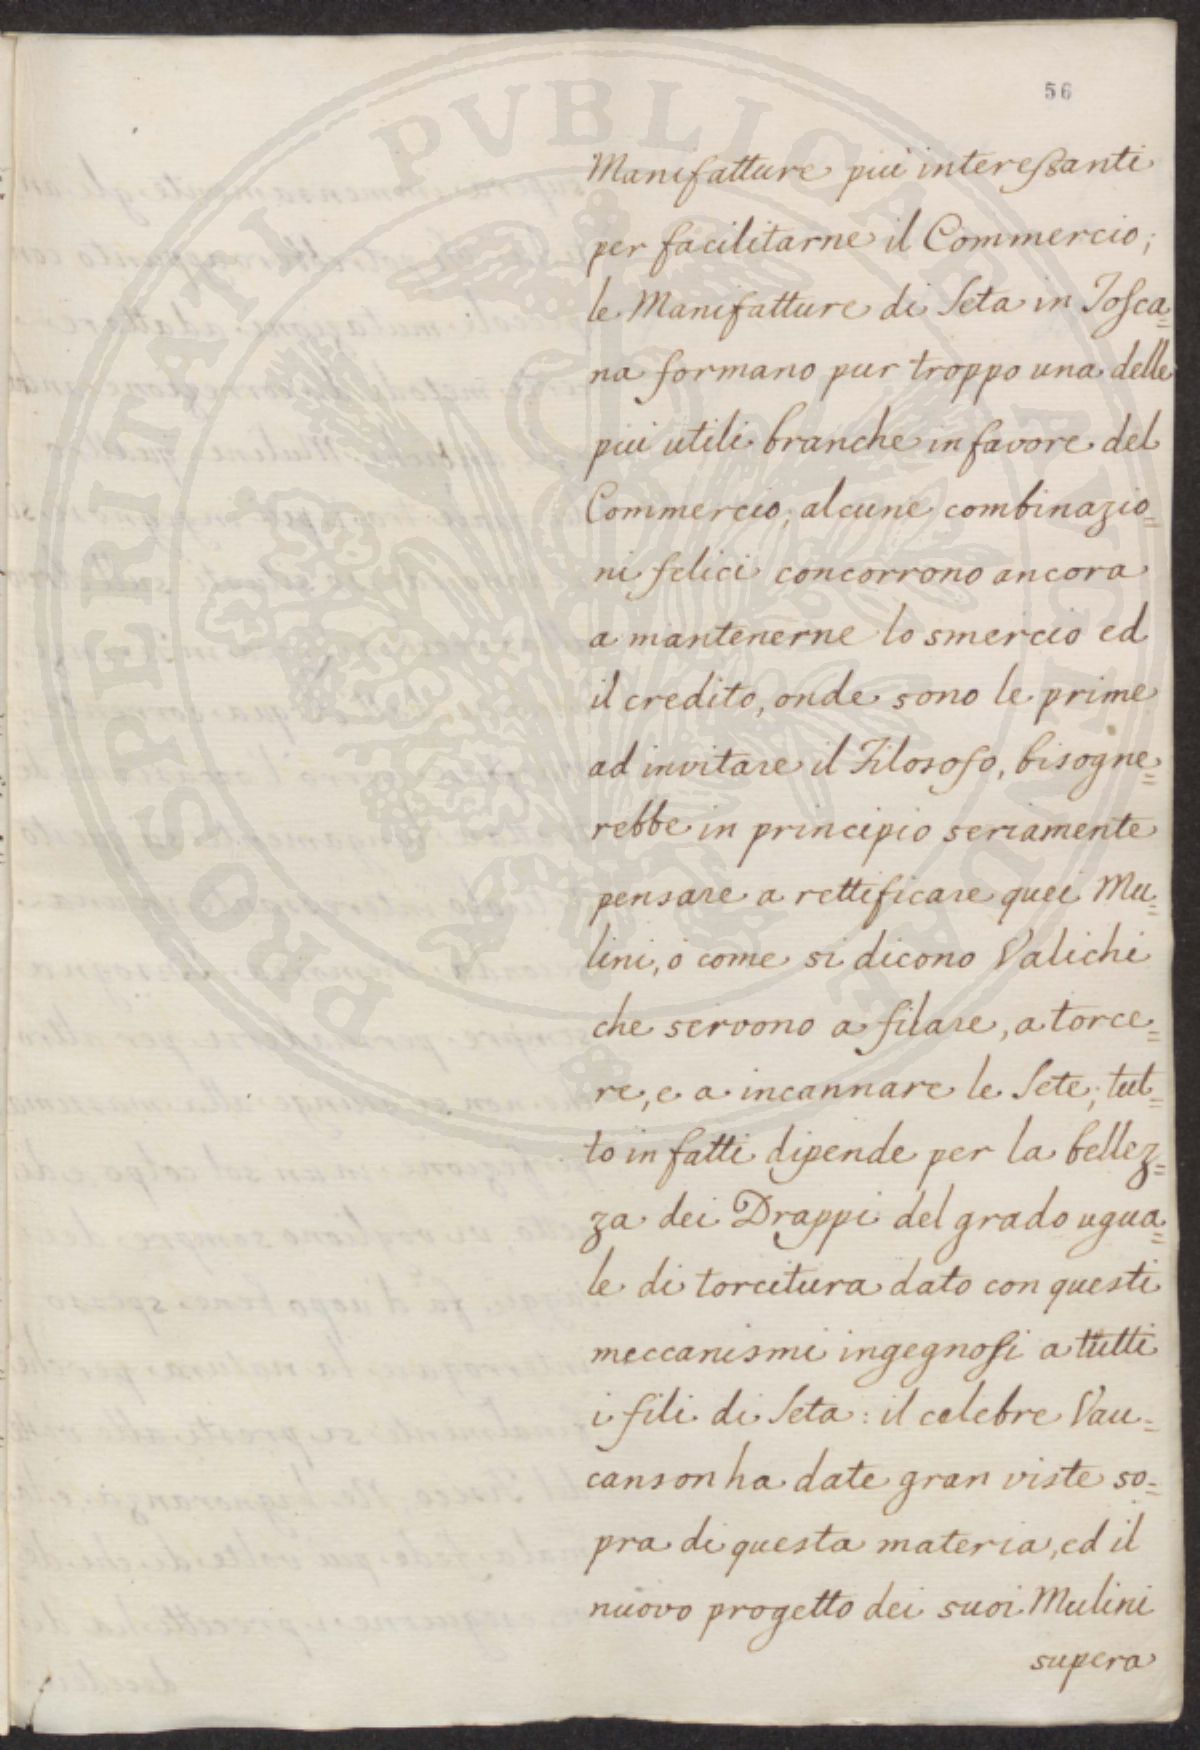 56
Manifatture più interessanti
per facilitarne il Commercio;
le Manifatture di Seta in Tosca=
na formano pur troppo una delle
più utili branche in favore del
Commercio; alcune combinazio=
ni felici concorrono ancora
a mantenerne lo smercio ed
il credito, onde sono le prime
ad invitare il Filosofo, bisogne=
rebbe in principio seriamente
pensare a rettificare quei Mu=
lini, o come si dicono Valichi
che servono a filare, a torce=
re, e a incannare le Sete; tut=
to in fatti dipende per la bellez=
za dei Drappi del grado ugua=
le di torcitura dato con questi
meccanismi ingegnosi a tutti
i fili di Seta: il celebre Vau=
canson ha date gran viste so=
pra di questa materia, ed il
nuovo progetto dei suoi Mulini
supera
PROSPERITATI PVBLICAE AVGENDAE